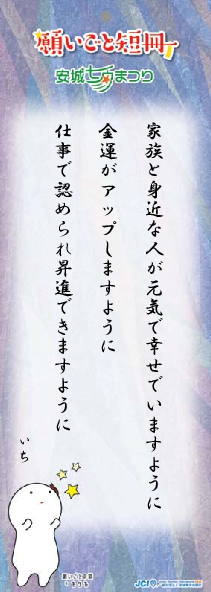 願いごと短冊
安城七夕まつり
家族と身近な人が元気で幸せでいますように
金運がアップしますように
仕事で認められ昇進できますように
いち
JCI